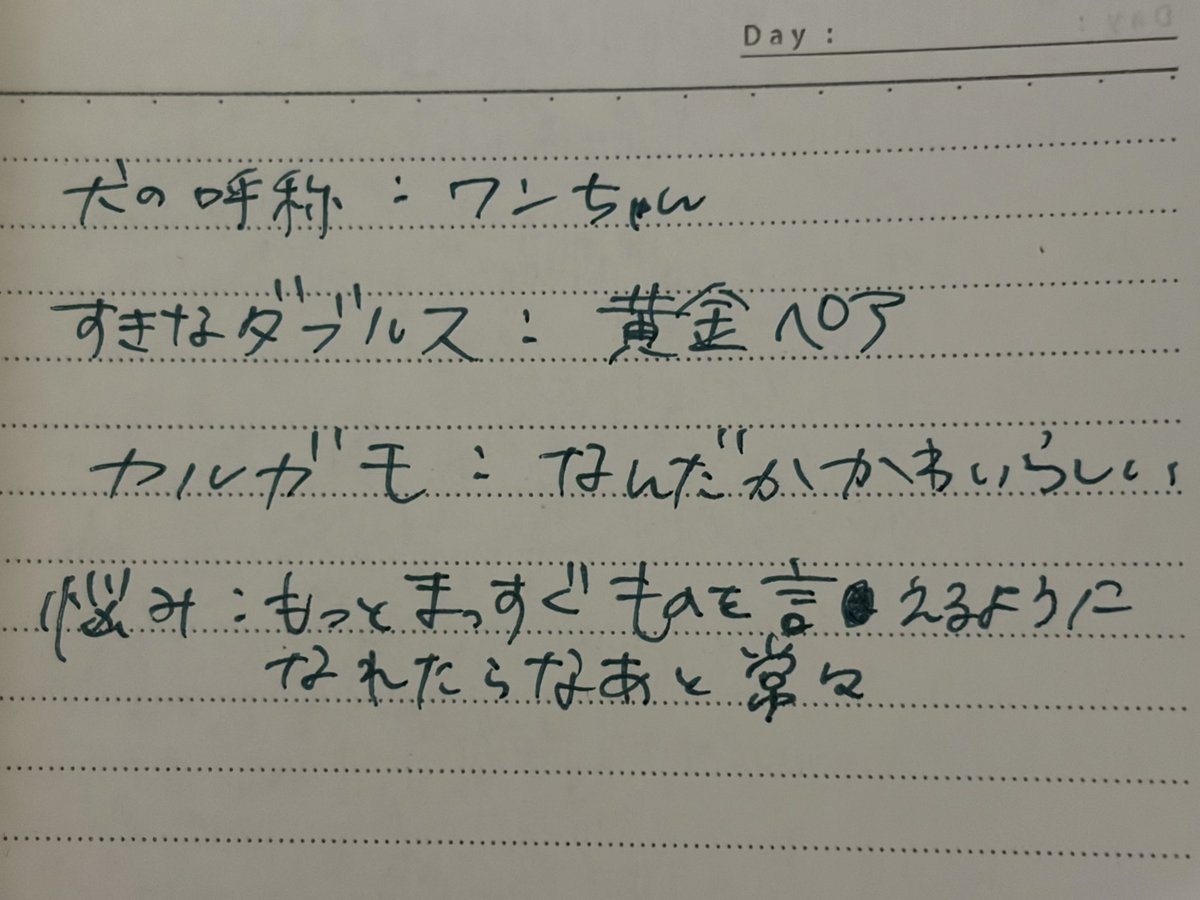 Day :
犬の呼称：ワンちゃん
すきなダブルス：黄金ペア
カルガモ：なんだかかわいらしい
悩み：もっとまっすぐものを言えるように
なれたらなあと常々